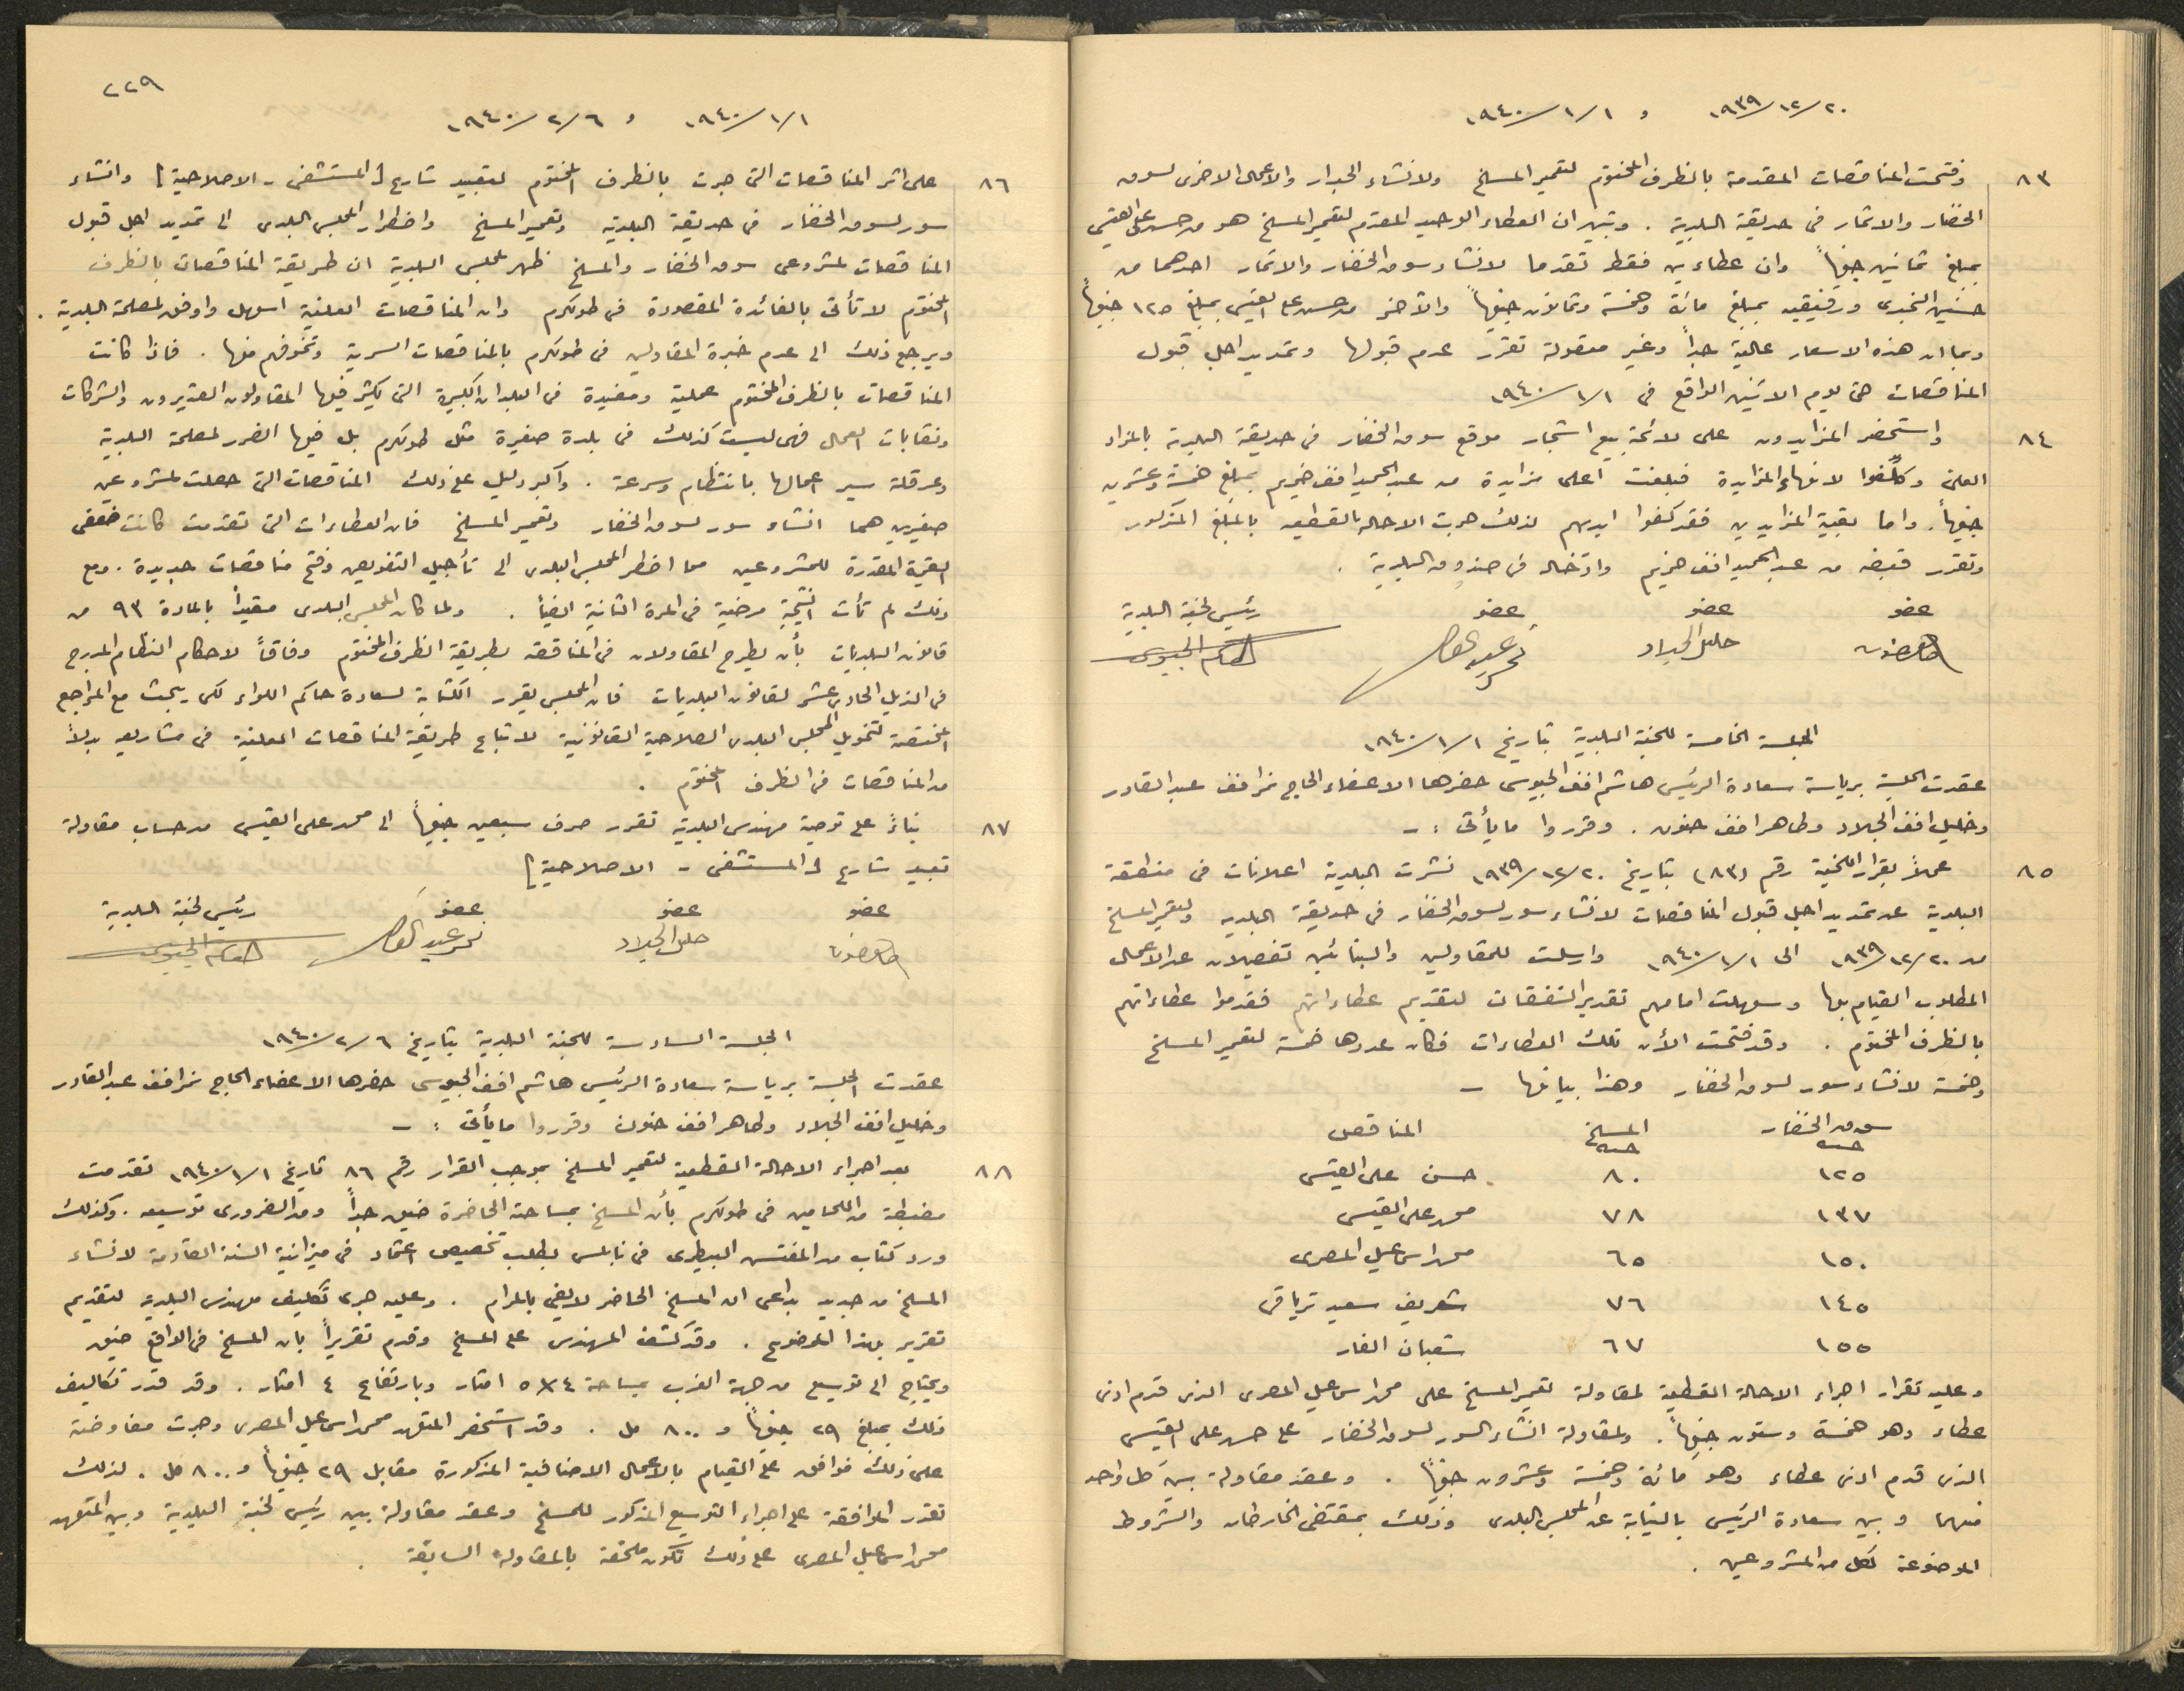 ١٩٣٩/١٢/٢٠ و ١٩٤٠/١/١
٨٣ فتحت المناقصات المقدمة بالظرف المختوم لتعمير المسلخ ولانشاء الجدار والاعمال الاخرى لسوق
الخضار والاثمار في حديقة البلدية . وتبين ان العطاء الوحيد المقدم لتعمير المسلخ هو من حسن علي القيسي
بمبلغ ثمانين جنيهاً وان عطاءين فقط تقدما لانشاء سوق الخضار والاثمار احدهما من
حسين النجدي ورفيقيه بمبلغ مائة وخمسة وثمانون جنيهاً والآخر من حسن علي القيسي بمبلغ ١٢٥ جنيهاً
وبما ان هذه الاسعار عالية جداً وغير معقولة تقرر عدم قبولها وتمديد اجل قبول
المناقصات حتى يوم الاثنين الواقع في ١٩٤٠/١/١
٨٤ واستحضر المزايدون على لائحة بيع اشجار موقع سوق الخضار في حديقة البلدية بالمزاد
العلني وكلفوا لانهاء المزايدة فبلغت اعلى مزايدة من عبد الحميد افندي خريم بمبلغ خمسة وعشرين
جنيهاً. واما بقية المزايدين فقد كفوا ايديهم لذلك جرت الاحالة القطعية بالمبلغ المذكور
وتقرر قبضه من عبد الحميد افندي خريم وادخاله في صندوق البلدية .
عضو عضو عضو رئيس لجنة البلدية
طاهر حنون خليل الجلاد نمر عبد القادر هاشم الجيوسي
الجلسة الخامسة للجنة البلدية بتاريخ ١٩٤٠/١/١
عقدت الجلسة برياسة سعادة الرئيس هاشم افندي الجيوسي حضرها الاعضاء الحاج نمر افندي عبد القادر
وخليل افندي الجلاد وطاهر افندي حنون . وقرروا ما يأتي :-
٨٥ عملاً بقرار اللجنة رقم (٨٣) بتاريخ ١٩٣٩/١٢/٢٠ نشرت البلدية اعلانات في منطقة
البلدية عن تمديد اجل قبول المناقصات لانشاء سور لسوق الخضار في حديقة البلدية ولتعمير المسلخ
من ١٩٣٩/١٢/٢٠ الى ١٩٤٠/١/١ وارسلت للمقاولين والبنائين تفصيلات عن الاعمال
المطلوب القيام بها وسهلت امامهم تقدير النفقات لتقديم عطاءاتهم فقدموا عطاءاتهم
بالظرف المختوم . وقد فتحت الأن تلك العطاءات فكان عددها خمسة لتعمير المسلخ
وخمسة لانشاء سور لسوق الخضار وهذا بيانها -
سوق الخضار المسلخ المناقص
جنيه جنيه
١٢٥ ٨٠ حسن علي القيسي
١٣٧ ٧٨ محمد علي القيسي
١٥٠ ٦٥ محمد اسماعيل المصري
١٤٥ ٧٦ شريف سعيد ترياقي
١٥٥ ٦٧ شعبان الفار
وعليه تقرار اجراء الاحالة القطعية لمقاولة تعمير المسلخ على محمد اسماعيل المصري الذي قدم ادنى
عطاء وهو خمسة وستون جنيهاً. ولمقاولة انشاء السور لسوق الخضار على حسن علي القيسي
الذي قدم ادنى عطاء وهو مائة وخمسة وعشرون جنيهاً . وعقد مقاولة بين كل واحد
منهما وبين سعادة الرئيس بالنيابة عن المجلس البلدي وذلك بمقتضى الخارطات والشروط
الموضوعة لكل من المشروعين .
٢٢٩
١٩٤٠/١/١ و ١٩٤٠/٢/٦
٨٦ على اثر المناقصات التي جرت بالظرف المختوم لتعبيد شارع [المستشفى - الاصلاحية] وانشاء
سور لسوق الخضار في حديقة البلدية وتعمير المسلخ واضطرار المجلس البلدي الى تمديد اجل قبول
المناقصات لمشروعي سوق الخضار والمسلخ ظهر لمجلس البلدية ان طريقة المناقصات بالظرف
المختوم لا تأتي بالفائدة المقصودة في طولكرم وان المناقصات العلنية اسهل واوفق لمصلحة البلدية .
ويرجع ذلك الى عدم خبرة المقاولين في طولكرم بالمناقصات السرية وتخوفهم منها . فاذا كانت
المناقصات بالظرف المختوم عملية ومفيدة في البلدان الكبيرة التي يكثر فيها المقاولون القديرون والشركات
ونقابات العمال فهي ليست كذلك في بلدة صغيرة مثل طولكرم بل فيها الضرر لمصلحة البلدية
وعرقلة سير اعمالها بانتظام وسرعة . واكبر دليل على ذلك المناقصات التي حصلت لمشروعين
صغيرين هما انشاء سور لسوق الخضار وتعمير المسلخ فان العطاءات التي تقدمت كانت ضعفي
القيمة المقدرة للمشروعين مما اضطر المجلس البلدي الى تأجيل التفويض وفتح مناقصات جديدة . ومع
ذلك لم تأت النتيجة مرضية في المرة الثانية ايضاً . ولما كان المجلس البلدي مقيداً بالمادة ٩٣ من
قانون البلديات بأن يطرح المقاولات في المناقصة بطريقة الظرف المختوم وفاقاً لاحكام النظام المدرج
في الذيل الحادي عشر لقانون البلديات فان المجلس يقرر الكتابة لسعادة حاكم اللواء لكي يبحث مع المراجع
المختصة لتخويل المجلس البلدي الصلاحية القانونية لاتباع طريقة المناقصات العلنية في مشاريعه بدلاً
من المناقصات في الظرف المختوم .
٨٧ بناءً على توصية مهندس البلدية تقرر صرف سبعين جنيهاً الى محمد علي القيسي من حساب مقاولة
تعبيد شارع [المستشفى - الاصلاحية]
عضو عضو عضو رئيس لجنة البلدية
طاهر حنون خليل الجلاد نمر عبد القادر هاشم الجيوسي
الجلسة السادسة للجنة البلدية بتاريخ ١٩٤٠/٢/٦
عقدت الجلسة برياسة سعادة الرئيس هاشم افندي الجيوسي حضرها الاعضاء الحاج نمر افندي عبد القادر
وخليل افندي الجلاد وطاهر افندي حنون وقرروا ما يأتي :-
٨٨ بعد اجراء الاحالة القطعية لتعمير المسلخ بموجب القرار رقم ٨٦ تاريخ ١٩٤٠/١/١ تقدمت
مضبطة من اللحامين في طولكرم بأن المسلخ بمساحته الحاضرة ضيق جداً ومن الضروري توسيعه . وكذلك
ورد كتاب من المفتش البيطري في نابلس بطلب تخصيص اعتماد في ميزانية السنة القادمة لانشاء
المسلخ من جديد بداعي ان المسلخ الحاضر لا يفي بالمرام . وعليه جرى تكليف مهندس البلدية لتقديم
تقرير بهذا الموضوع . وقد كشف المهندس على المسلخ وقدم تقريراً بان المسلخ في الواقع ضيق
ويحتاج الى توسيع من جهة الغرب بمساحة ٤×٥ امتار وبارتفاع ٤ امتار . وقد قدر تكاليف
ذلك بمبلغ ٢٩ جنيهاً و ٨٠٠ مل . وقد استحضر المتعهد محمد اسماعيل المصري وجرت مفاوضته
على ذلك فوافق على القيام بالاعمال الاضافية المذكورة مقابل ٢٩ جنيهاً و ٨٠٠ مل . لذلك
تقرر الموافقة على اجراء التوسيع المذكور للمسلخ وعقد مقاولة بين رئيس لجنة البلدية وبين المتعهد
محمد اسماعيل المصري على ذلك تكون ملحقة بالمقاولة السابقة .